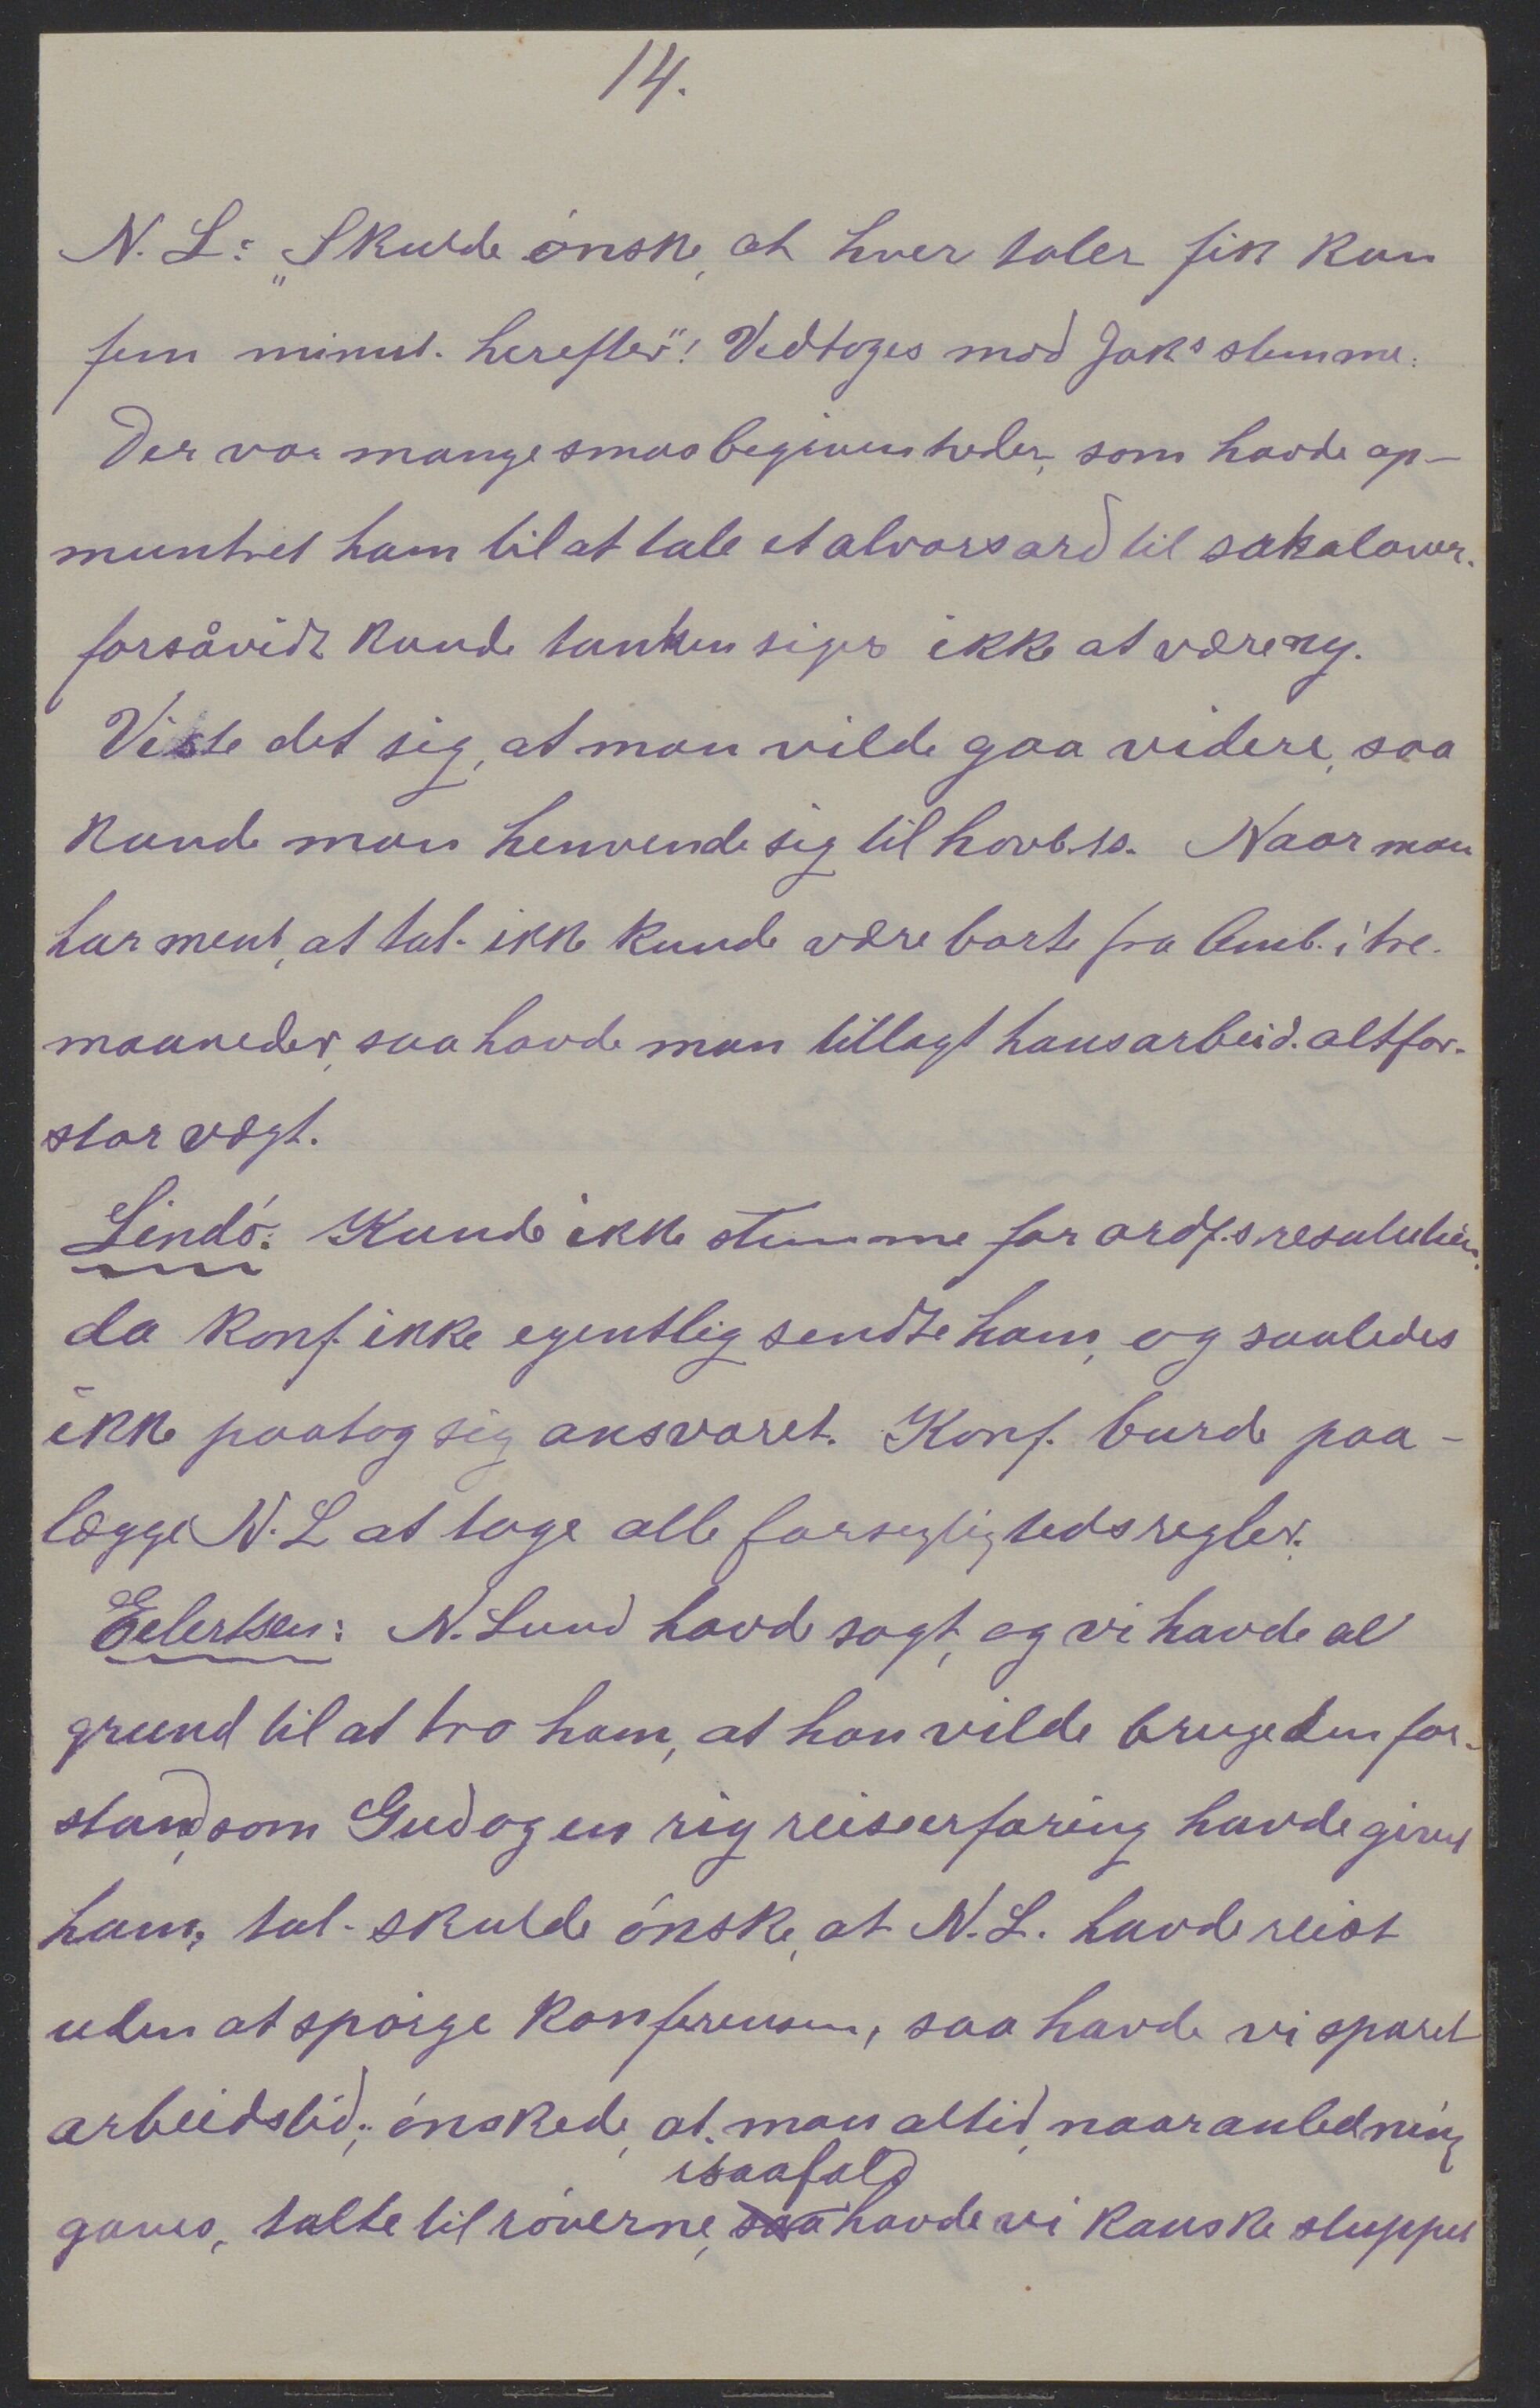 14.
N. L: „Skulde ónske, at hver taler fik kun
fem minut. herefter"! Vedtoges mod Jaks stemme.
Der var mange smaabegivenheder, som havde op-
muntret ham til at tale et alvorsord til sakalaver.
forsåvidt kunde tanken siges ikke at være ny.
Viste det sig, at man vilde gaa videre, saa
kunde man henvende sig til hovbs. Naar man
har ment, at tal. ikke kunde være borte fra Amb. i tre.
maaneder, saa havde man tillagt hans arbeid. altfor.
stor vægt.
Lindó: Kunde ikke stemme for ordf.s resolution,
da konf. ikke egentlig sendte ham, og saaledes
ikke paatog sig ansvaret. Konf. burde paa-
lægge N. L at tage alle forsigtighedsregler.
Eilertsen: N. Lund havde sagt, og vi havde al
grund til at tro ham, at han vilde bruge den for-
stand, som Gud og en rig reiseerfaring havde givet
ham; tal. skulde ónske, at N. L. havde reist
uden at spórge konferensen, saa havde vi sparet
arbeidstid; ónskede, at man altid, naar anledning
isaafald
gaves, talte til róverne, saa havde vi kanske sluppet